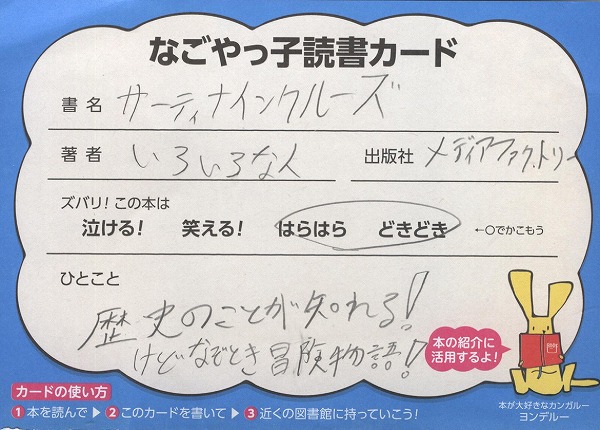 なごやっ子読書カード
書名 サーティナインクルーズ
著者 いろいろな人 出版社 メディアファクトリー
ズバリ!この本は
泣ける! 笑える! はらはら どきどき ←○でかこもう
ひとこと
歴史のことが知れる!
けどなぞとき冒険物語!
本の紹介に
活用するよ!
カードの使い方
1 本を読んで ▶ 2 このカードを書いて ▶ 3 近くの図書館に持っていこう!
本が大好きなカンガルー
ヨンデルー